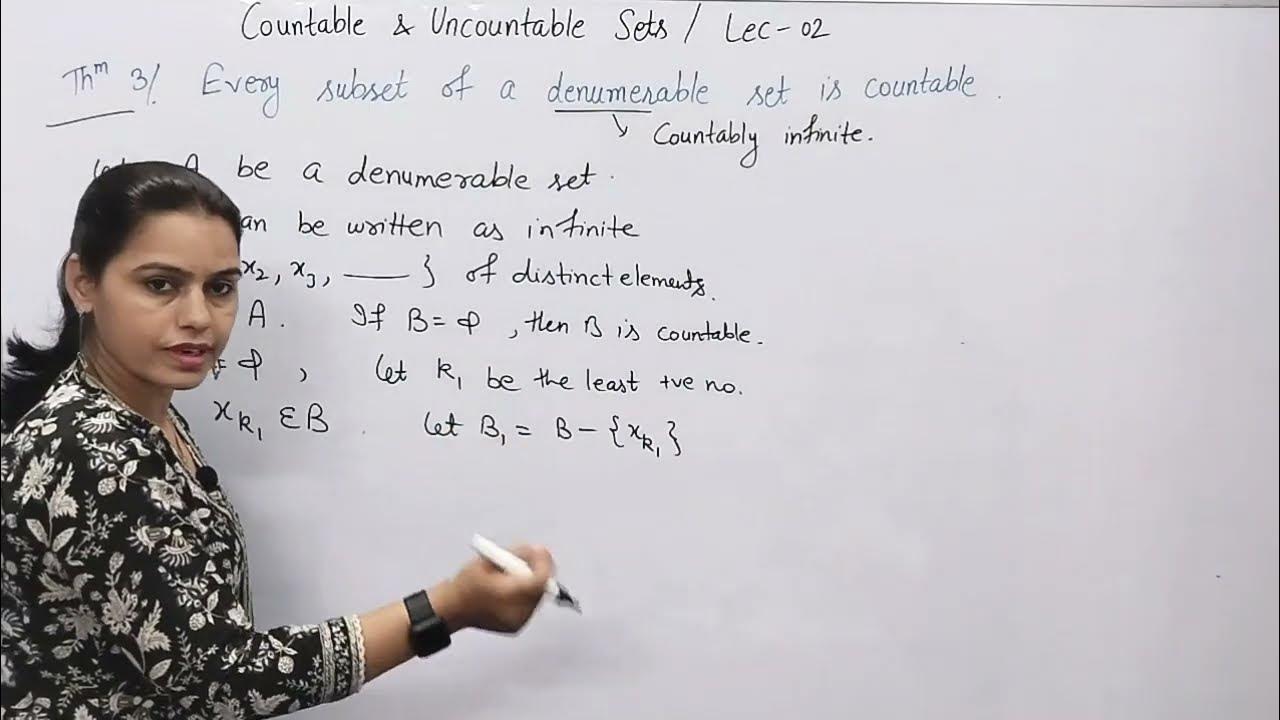 Countable & Uncountable Sets / Lec-02
Thm 3/. Every subset of a denumerable set is countable.
↘ Countably infinite.
A be a denumerable set.
an be written as infinite
x2, x3, —— } of distinct elements.
A. If B = φ, then B is countable.
φ, Let k1 be the least +ve no.
xk1 ∈ B. Let B1 = B - {xk1}